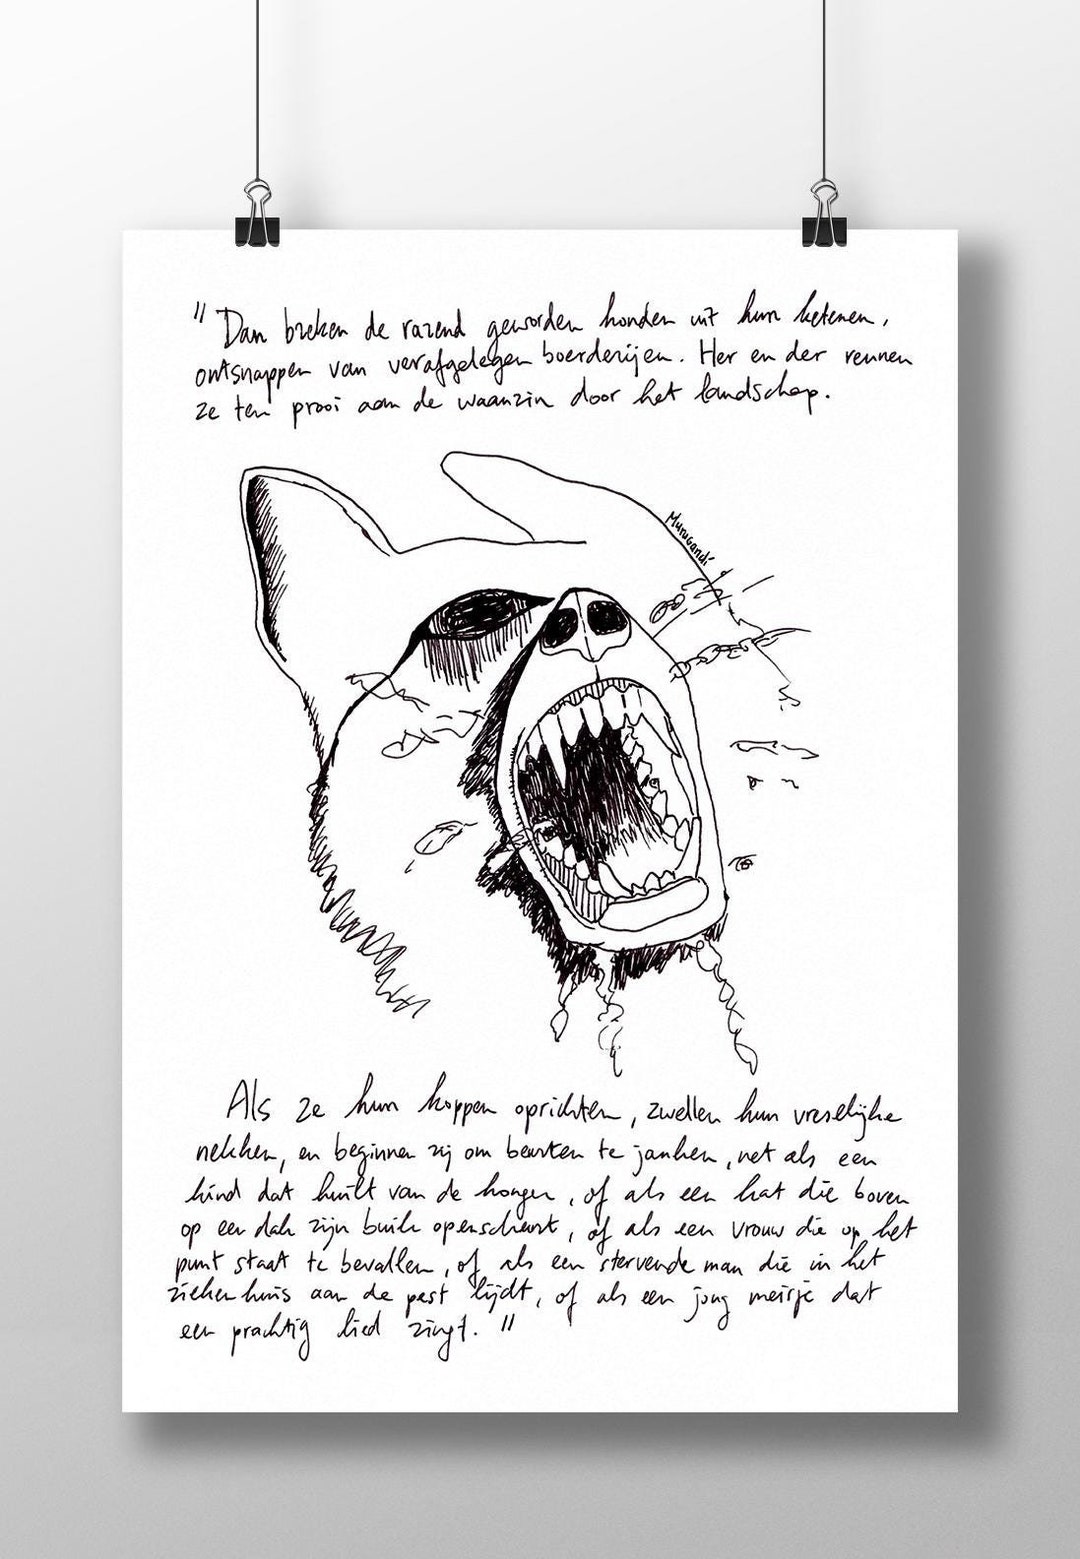 "Dan breken de razend geworden honden uit hun ketenen,
ontsnappen van verafgelegen boerderijen. Her en der rennen
ze ten prooi aan de waanzin door het landschap.
Murugandi
Als ze hun koppen oprichten, zwellen hun vreselijke
nekken, en beginnen zij om beurten te janken, net als een
kind dat huilt van de honger, of als een kat die boven
op een dak zijn buik openscheurt, of als een vrouw die op het
punt staat te bevallen, of als een stervende man die in het
ziekenhuis aan de pest lijdt, of als een jong meisje dat
een prachtig lied zingt."